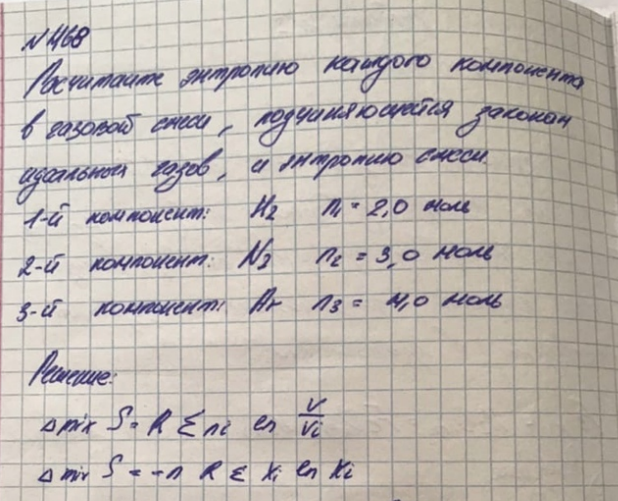 N 468
Расчитайте энтропию каждого компонента
в газовой смеси, подчиняющейся законам
идеальных газов, и энтропию смеси.
1-й компонент: H2 n1 = 2,0 моль
2-й компонент: N2 n2 = 3,0 моль
3-й компонент: Ar n3 = 4,0 моль
Решение:
Δmix S = R Σ ni ln V/Vi
Δmix S = -n R Σ Xi ln Xi